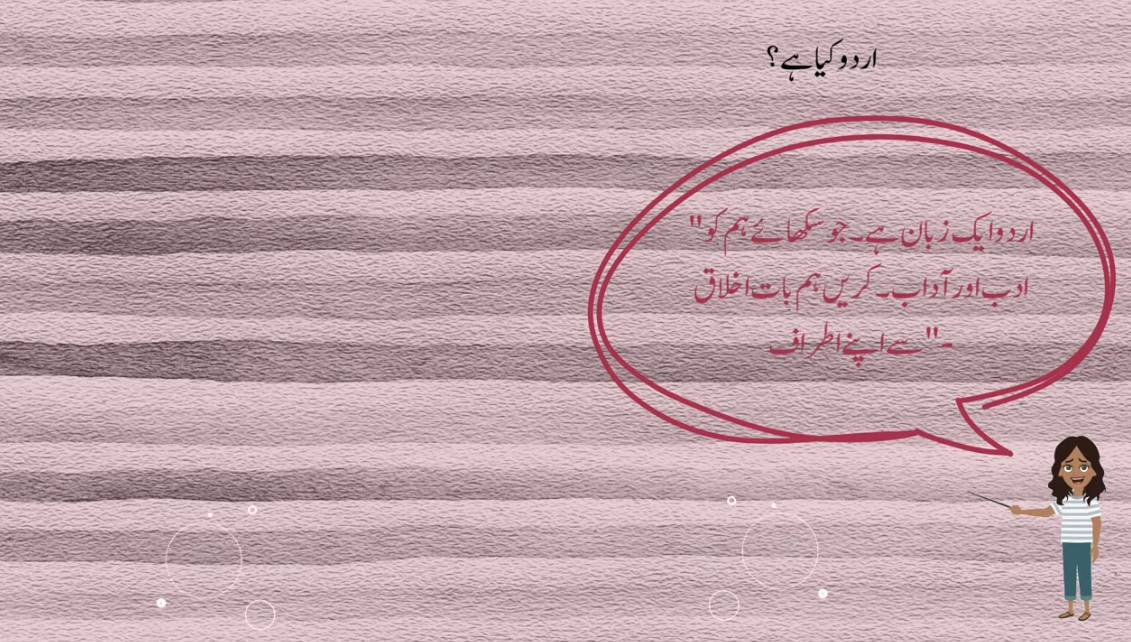 اردو کیا ہے؟
اردو ایک زبان ہے۔ جو سکھائے ہم کو"
ادب اور آداب۔ کریں ہم بات اخلاق
-"سے اپنے اطراف